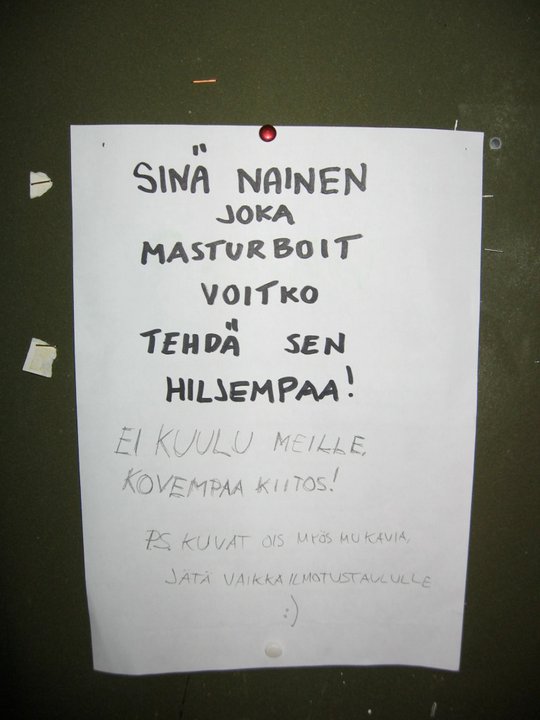 SINÄ NAINEN
JOKA
MASTURBOIT
VOITKO
TEHDÄ SEN
HILJEMPAA!
EI KUULU MEILLE,
KOVEMPAA KIITOS!
PS. KUVAT OIS MYÖS MUKAVIA,
JÄTÄ VAIKKA ILMOTUSTAULULLE
:)